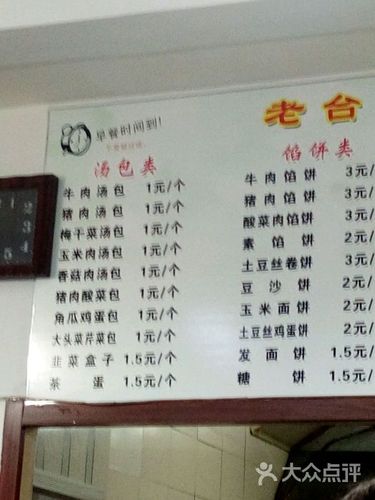 老台
早餐时间到!
汤包类
牛肉汤包 1元/个
猪肉汤包 1元/个
梅干菜汤包 1元/个
玉米肉汤包 1元/个
香菇肉汤包 1元/个
猪肉酸菜包 1元/个
角瓜鸡蛋包 1元/个
大头菜芹菜包 1元/个
韭菜盒子 1.5元/个
茶蛋 1.5元/个
馅饼类
牛肉馅饼 3元/
猪肉馅饼 3元/
酸菜肉馅饼 3元/
素馅饼 2元/
土豆丝卷饼 3元/
豆沙饼 2元/
玉米面饼 2元/
土豆丝鸡蛋饼 2元/
发面饼 1.5元/
糖饼 1.5元/
1 2
3
4
5 5
大众点评